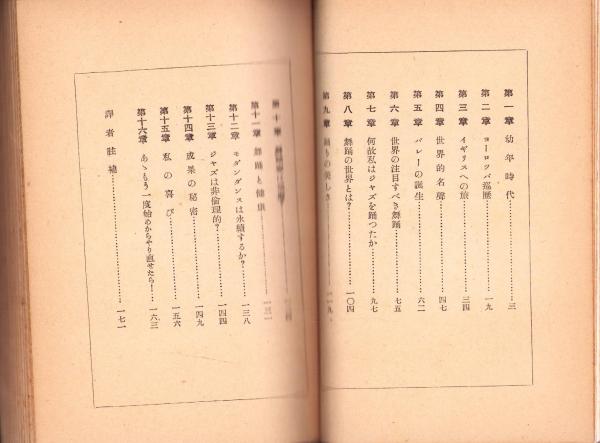 第一章 幼年時代……三
第二章 ヨーロッパ巡歴……一九
第三章 イギリスへの旅……三四
第四章 世界的名聲……四七
第五章 バレーの誕生……六二
第六章 世界の注目すべき舞踊……七五
第七章 何故私はジャズを踊つたか……九七
第八章 舞踊の世界とは?……一〇四
第九章 踊りの美しさ……一一九
第十章
第十一章 舞踊と健康……一三一
第十二章 モダンダンスは永續するか?……一三八
第十三章 ジャズは非倫理的?……一四四
第十四章 成果の秘密……一四九
第十五章 私の喜び……一五六
第十六章 あゝもう一度始めからやり直せたら!……一六三
譯者註補……一七一